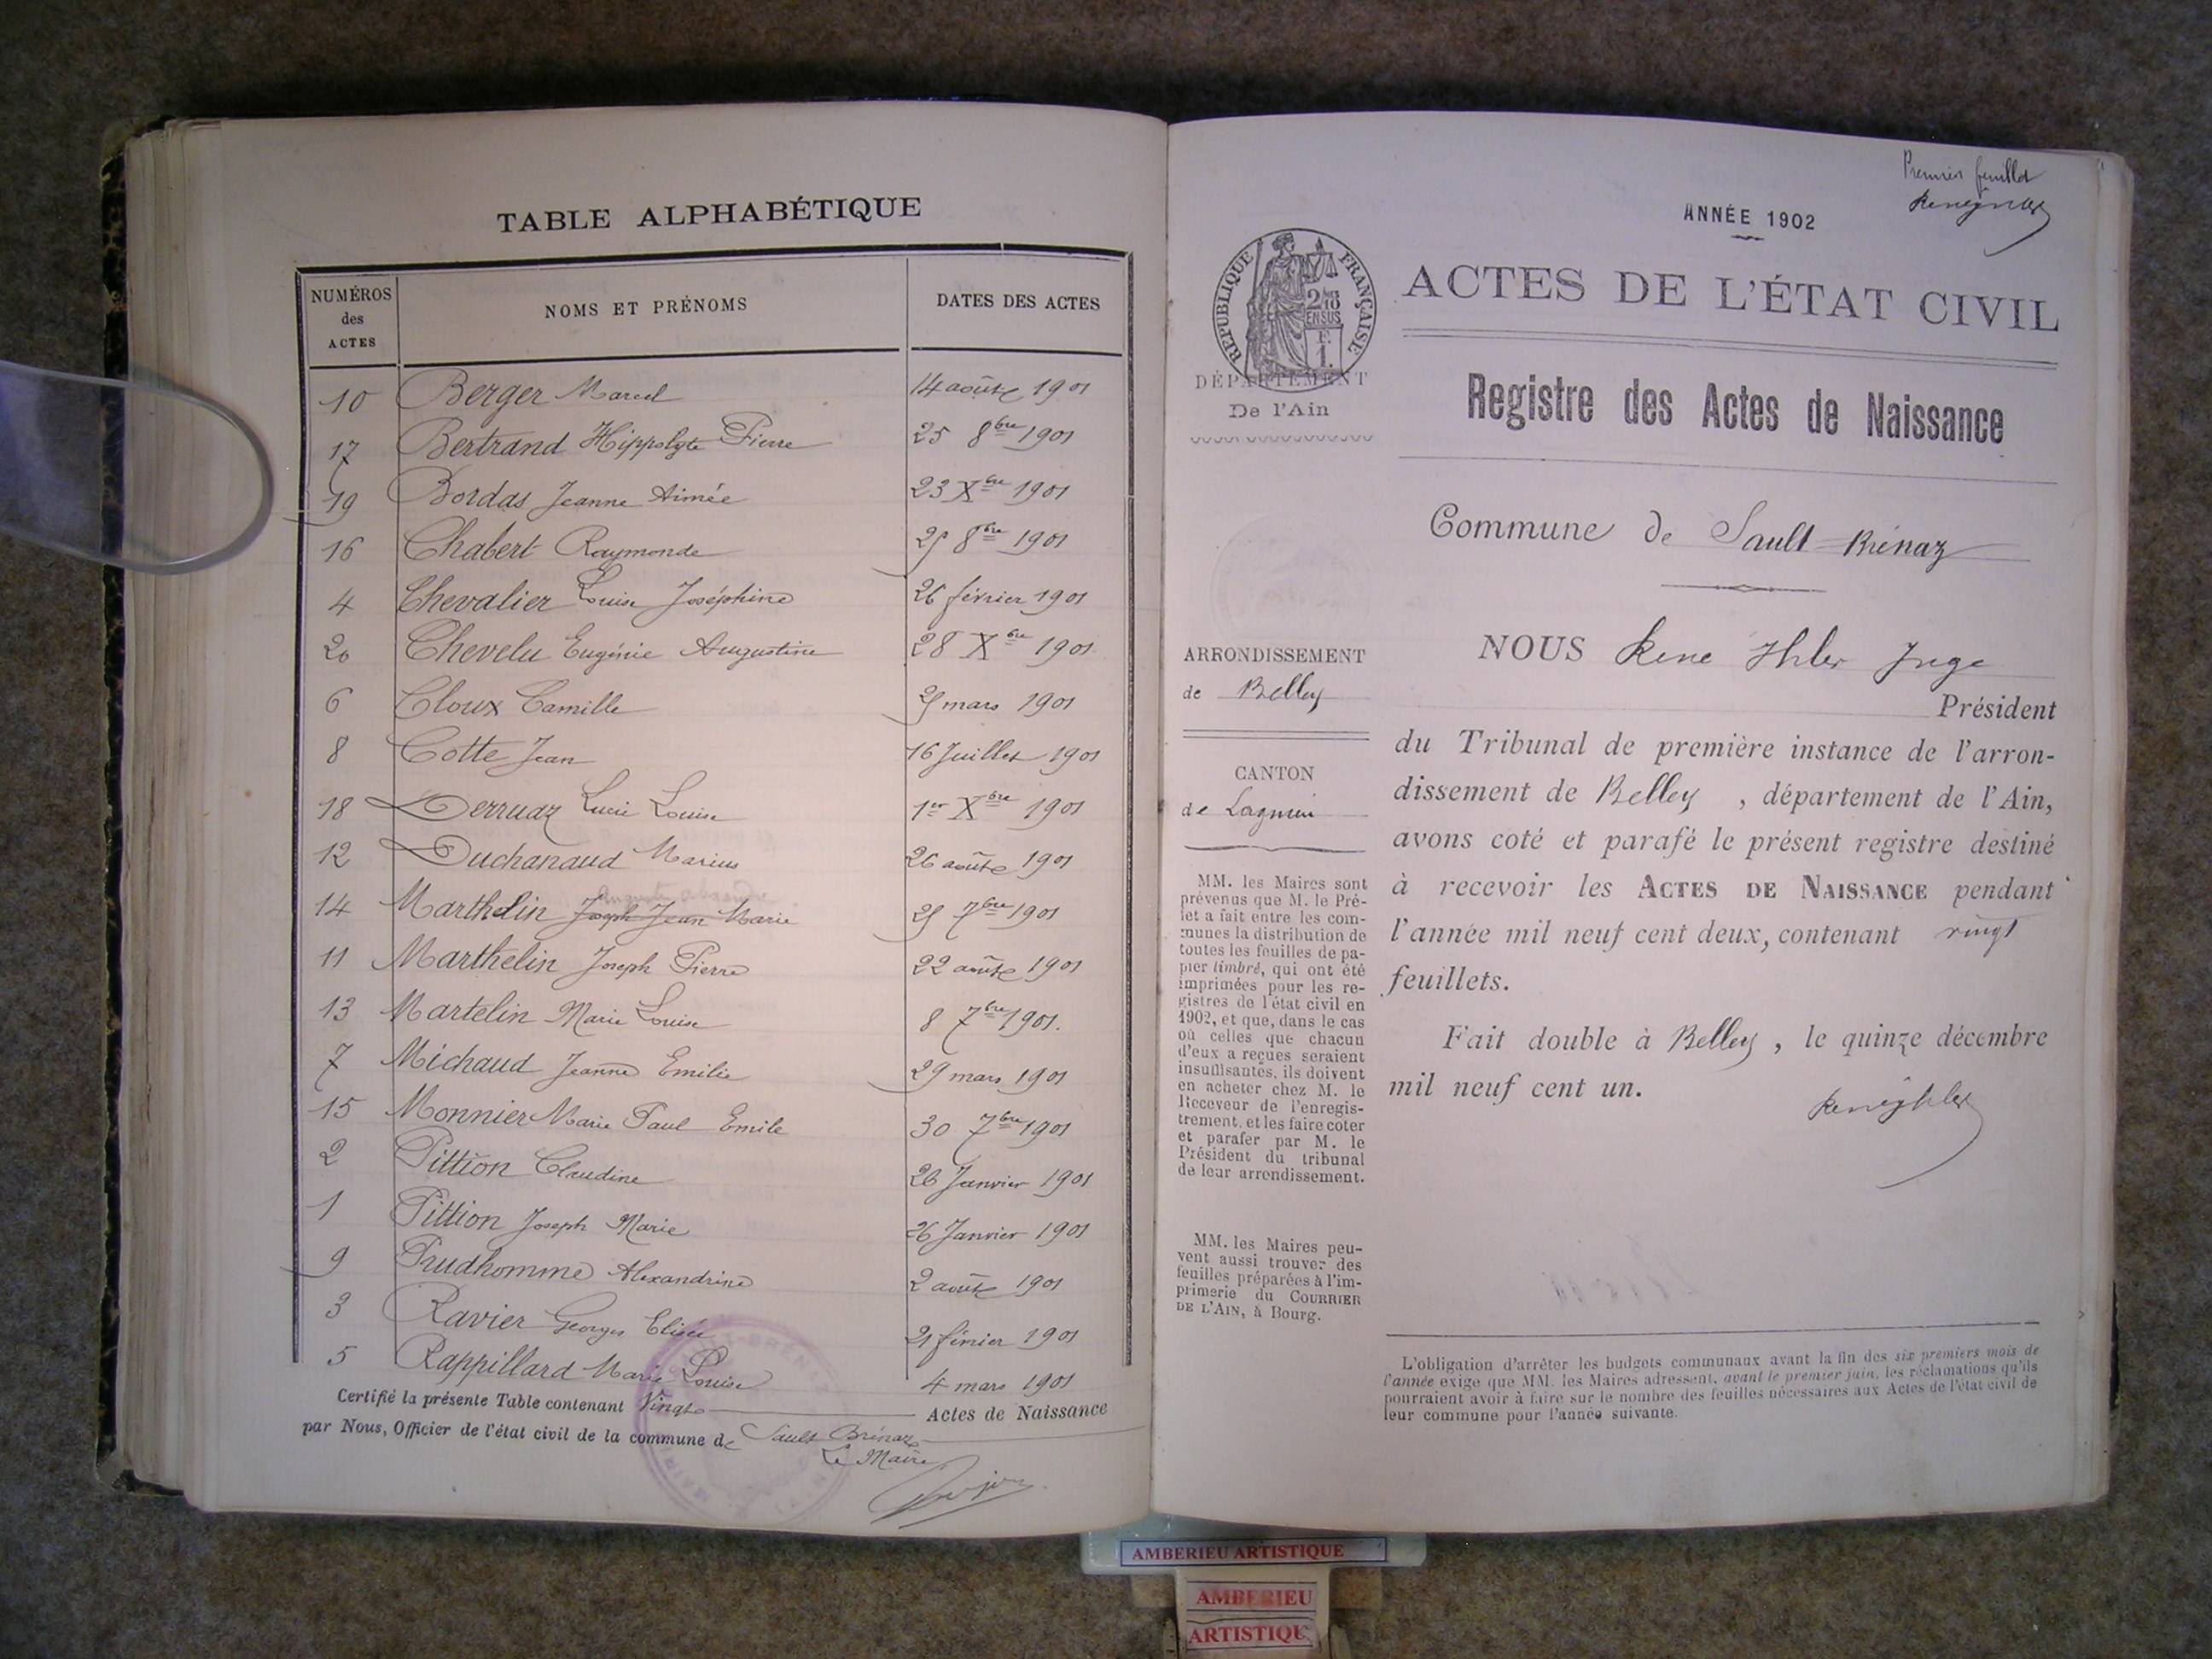 TABLE ALPHABÉTIQUE
NUMÉROS des ACTES NOMS ET PRÉNOMS DATES DES ACTES
10 Berger Marcel 14 août 1901
17 Bertrand Hippolyte Pierre 25 8bre 1901
19 Bordas Jeanne Aimée 23 Xbre 1901
16 Chabert Raymonde 8bre 1901
4 Chevalier Louise Joséphine 26 février 1901
20 Chevelu Eugénie Augustine 28 Xbre 1901
6 Cloux Camille mars 1901
8 Cotte Jean 16 Juillet 1901
18 Derruaz Lucie Louise 1er Xbre 1901
12 Duchanaud Marius 26 août 1901
14 Marthelin Joseph Jean Marie 7bre 1901
11 Marthelin Joseph Pierre 22 août 1901
13 Martelin Marie Louise 8 7bre 1901.
7 Michaud Jeanne Emilie 29 mars 1901
15 Monnier Marie Paul Emile 30 7bre 1901
2 Pittion Claudine 26 Janvier 1901
1 Pittion Joseph Marie 26 Janvier 1901
9 Prudhomme Alexandrine 2 août 1901
3 Ravier Georges Elisée 21 février 1901
5 Rappillard Marie Louise 4 mars 1901
Certifié la présente Table contenant Vingt Actes de Naissance
par Nous, Officier de l'état civil de la commune de Sault Brénaz
Le Maire
Premier feuillet
ANNÉE 1902
RÉPUBLIQUE FRANÇAISE
ACTES DE L'ÉTAT CIVIL
DÉPARTEMENT
De l'Ain
Registre des Actes de Naissance
Commune de Sault-Brénaz
ARRONDISSEMENT
de Belley
CANTON
de Lagnieu
MM. les Maires sont
prévenus que M. le Pré-
fet a fait entre les com-
munes la distribution de
toutes les feuilles de pa-
pier timbré, qui ont été
imprimées pour les re-
gistres de l'état civil en
1902, et que, dans le cas
où celles que chacun
d'eux a reçues seraient
insuffisantes, ils doivent
en acheter chez M. le
Receveur de l'enregis-
trement, et les faire coter
et parafer par M. le
Président du tribunal
de leur arrondissement.
MM. les Maires peu-
vent aussi trouver des
feuilles préparées à l'im-
primerie du COURRIER
DE L'AIN, à Bourg.
NOUS René Ihler Juge
Président
du Tribunal de première instance de l'arron-
dissement de Belley, département de l'Ain,
avons coté et parafé le présent registre destiné
à recevoir les ACTES DE NAISSANCE pendant
l'année mil neuf cent deux, contenant vingt
feuillets.
Fait double à Belley, le quinze décembre
mil neuf cent un.
René Ihler
L'obligation d'arrêter les budgets communaux avant la fin des six premiers mois de
l'année exige que MM. les Maires adressent, avant le premier juin, les réclamations qu'ils
pourraient avoir à faire sur le nombre des feuilles nécessaires aux Actes de l'état civil de
leur commune pour l'année suivante.
AMBERIEU ARTISTIQUE
AMBERIEU
ARTISTIQUE